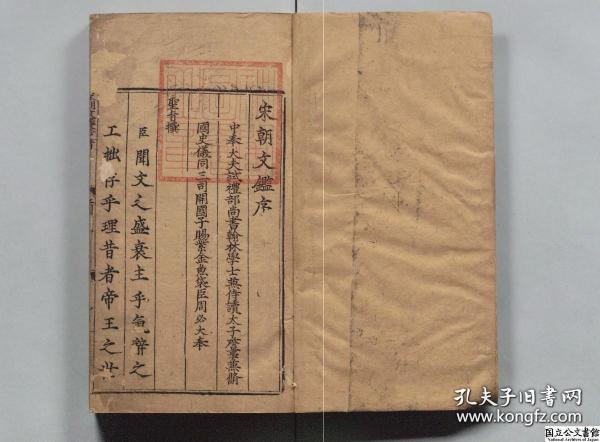 宋朝文鑑序
中奉大夫試禮部尚書翰林學士兼侍讀太子詹事兼脩
國史儀同三司開國子賜紫金魚袋臣周必大奉
聖旨撰
臣聞文之盛衰主乎氣辭之
工拙存乎理昔者帝王之世
孔夫子旧书网
www.kongfz.com
国立公文書館
National Archives of Japan